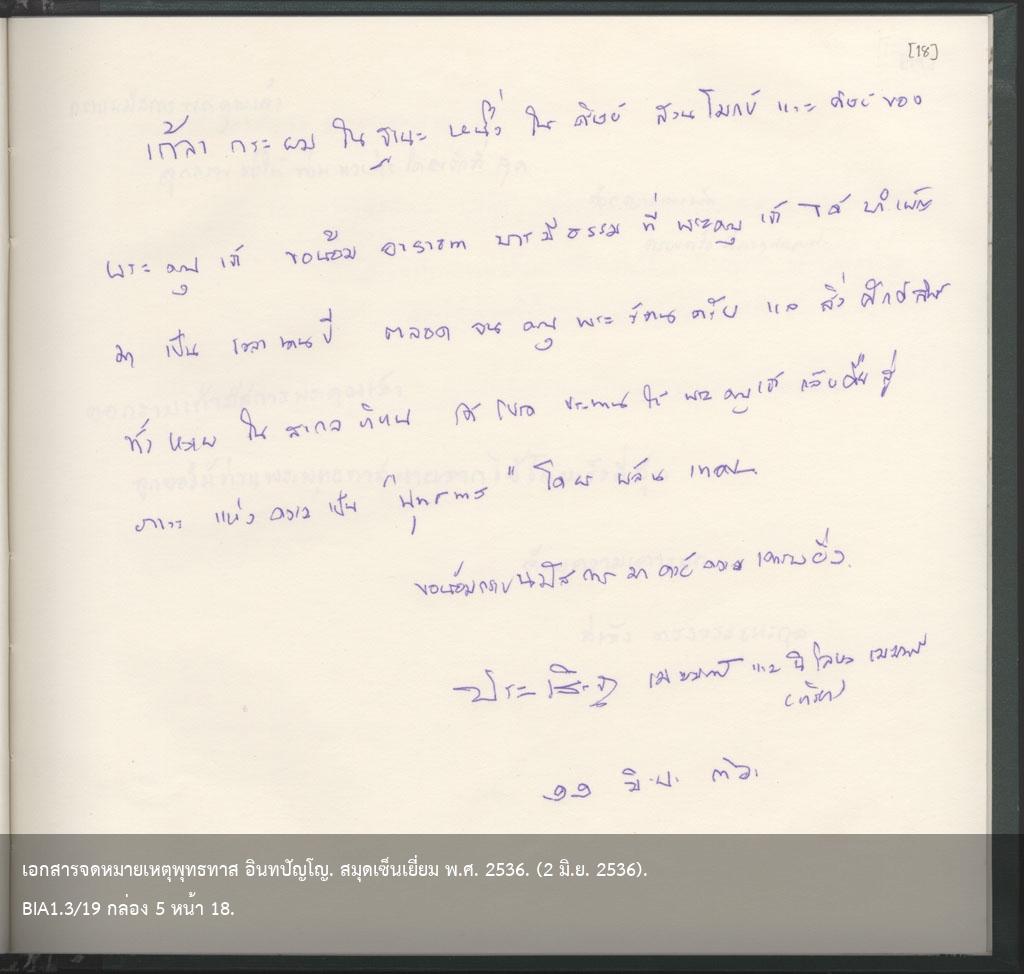 [18]
เกล้า กระผม ในฐานะ หนึ่ง ใน ศิษย์ สวนโมกข์ และ ศิษย์ ของ
พระ คุณ เจ้า ขอน้อม อาราธนา บารมีธรรม ที่ พระคุณ เจ้า ได้ บำเพ็ญ
มา เป็น เวลา นานปี ตลอด จน คุณ พระ รัตน ตรัย แล สิ่ง ศักดิ์สิทธิ์
ทั้ง หลาย ใน สากล ได้ โปรด ประทาน ให้ พระ คุณ เจ้า กลับคืน สู่
ภาวะ แห่ง ความ เป็น "พุทธทาส" โดย พลัน เทอญ.
ขอน้อมกราบนมัสการ มา ด้วย ความ เคารพยิ่ง.
ประเสริฐ และ
(ภริยา)
๑๑ มิ.ย. ๓๖.
เอกสารจดหมายเหตุพุทธทาส อินทปัญโญ. สมุดเซ็นเยี่ยม พ.ศ. 2536. (2 มิ.ย. 2536).
BIA1.3/19 กล่อง 5 หน้า 18.